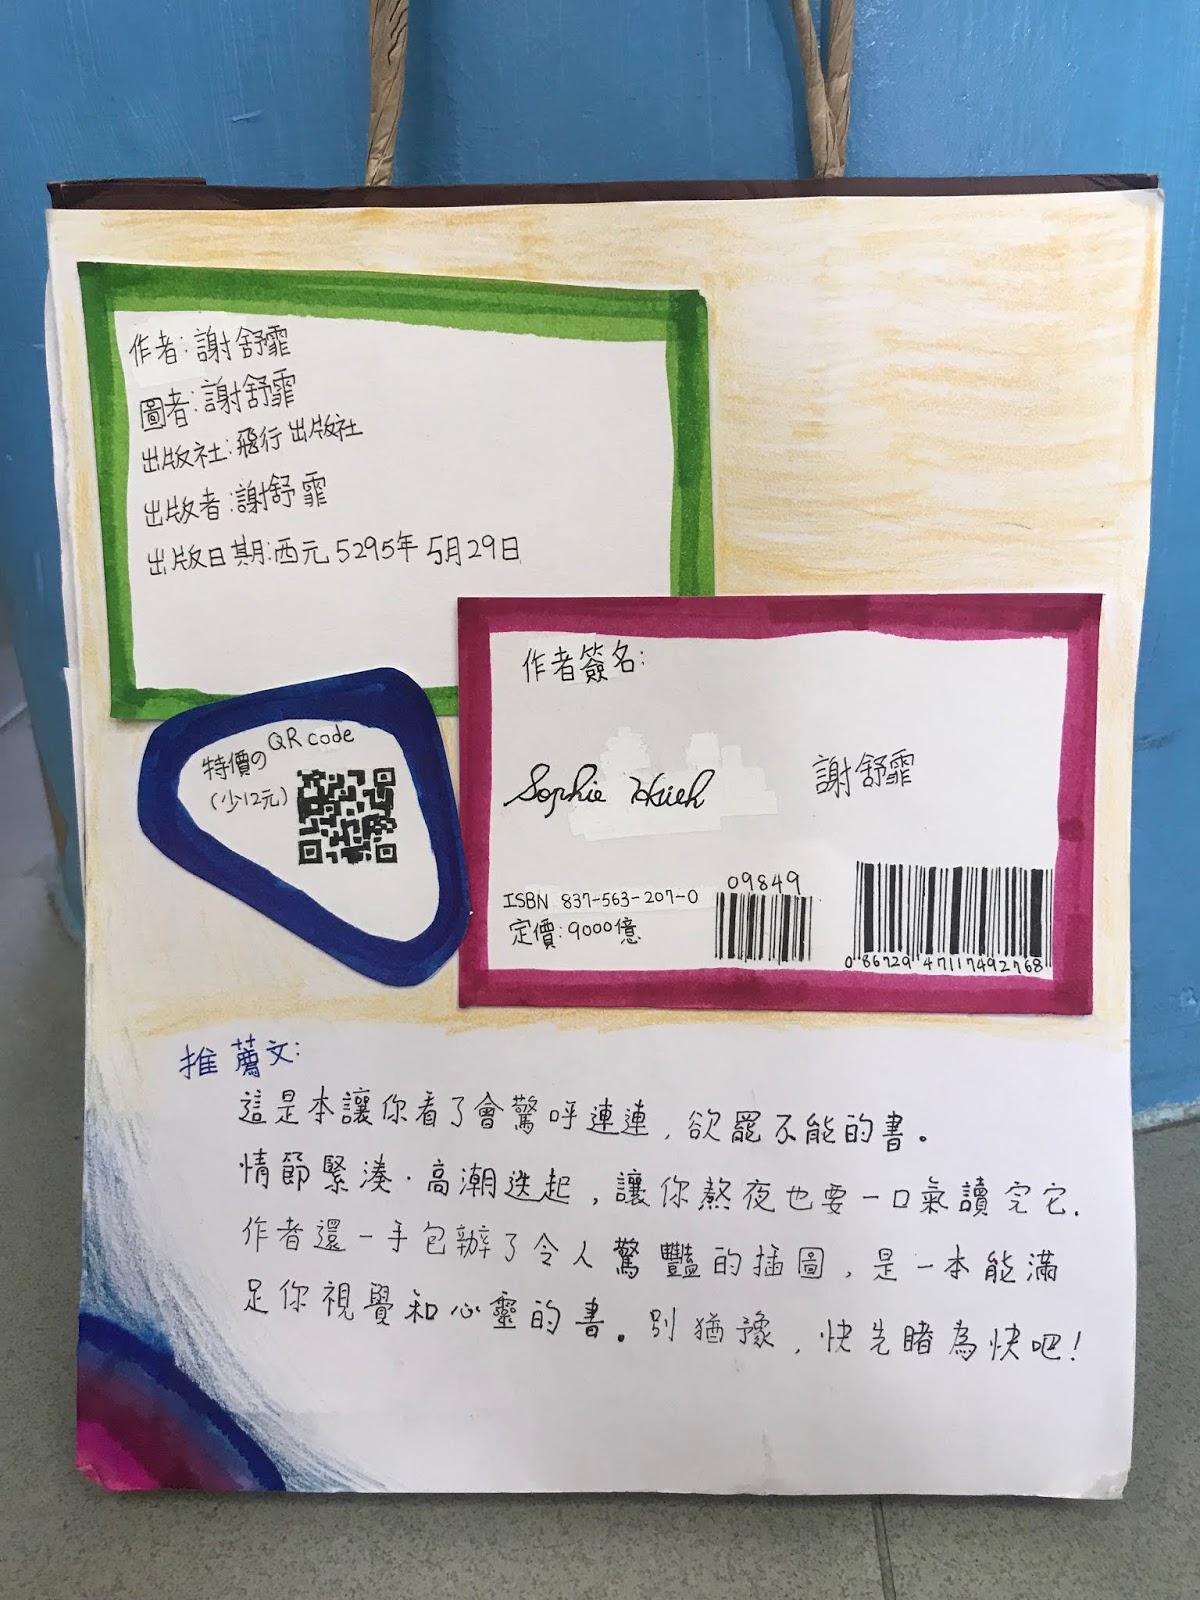 作者:謝舒霏
圖者:謝舒霏
出版社:飛行出版社
出版者:謝舒霏
出版日期:西元5295年5月29日
特價のQR code
(少12元)
作者簽名:
Sophie Hsieh
謝舒霏
ISBN 837-563-207-0
定價:9000億
09849
0 86729 47117492768
推薦文:
這是本讓你看了會驚呼連連,欲罷不能的書。
情節緊湊.高潮迭起,讓你熬夜也要一口氣讀完它.
作者還一手包辦了令人驚豔的插圖,是一本能滿
足你視覺和心靈的書。別猶豫,快先睹為快吧!